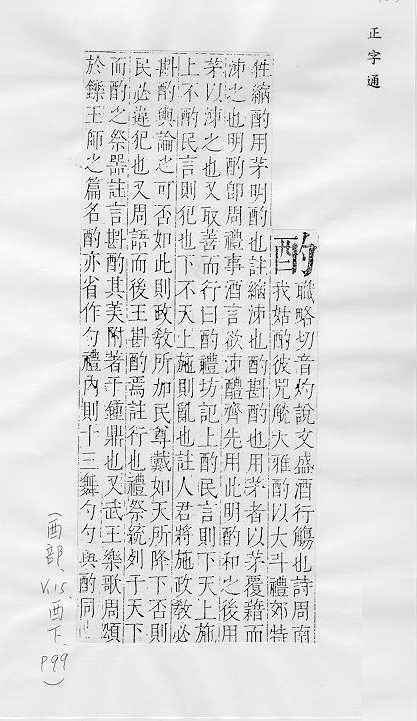 正字通
酌
職略切音灼說文盛酒行觴也詩周南
我姑酌彼兕觥大雅酌以大斗禮郊特
牲縮酌用茅明酌也註縮泲也酌斟酌也用茅者以茅覆藉而
泲之也明酌卽周禮事酒言欲泲醴齊先用此明酌和之後用
茅以泲之也又取善而行曰酌禮坊記上酌民言則下天上施
上不酌民言則犯也下不天上施則亂也註人君將施政敎必
斟酌輿論之可否如此則政敎所加民尊戴如天所降下否則
民必違犯也又周語而後王斟酌焉註行也禮祭統列于天下
而酌之祭器註言斟酌其美附著于鍾鼎也又武王樂歌周頌
於鑠王師之篇名酌亦省作勺禮內則十三舞勺勺與酌同
(酉部、V.15 酉下 P99)